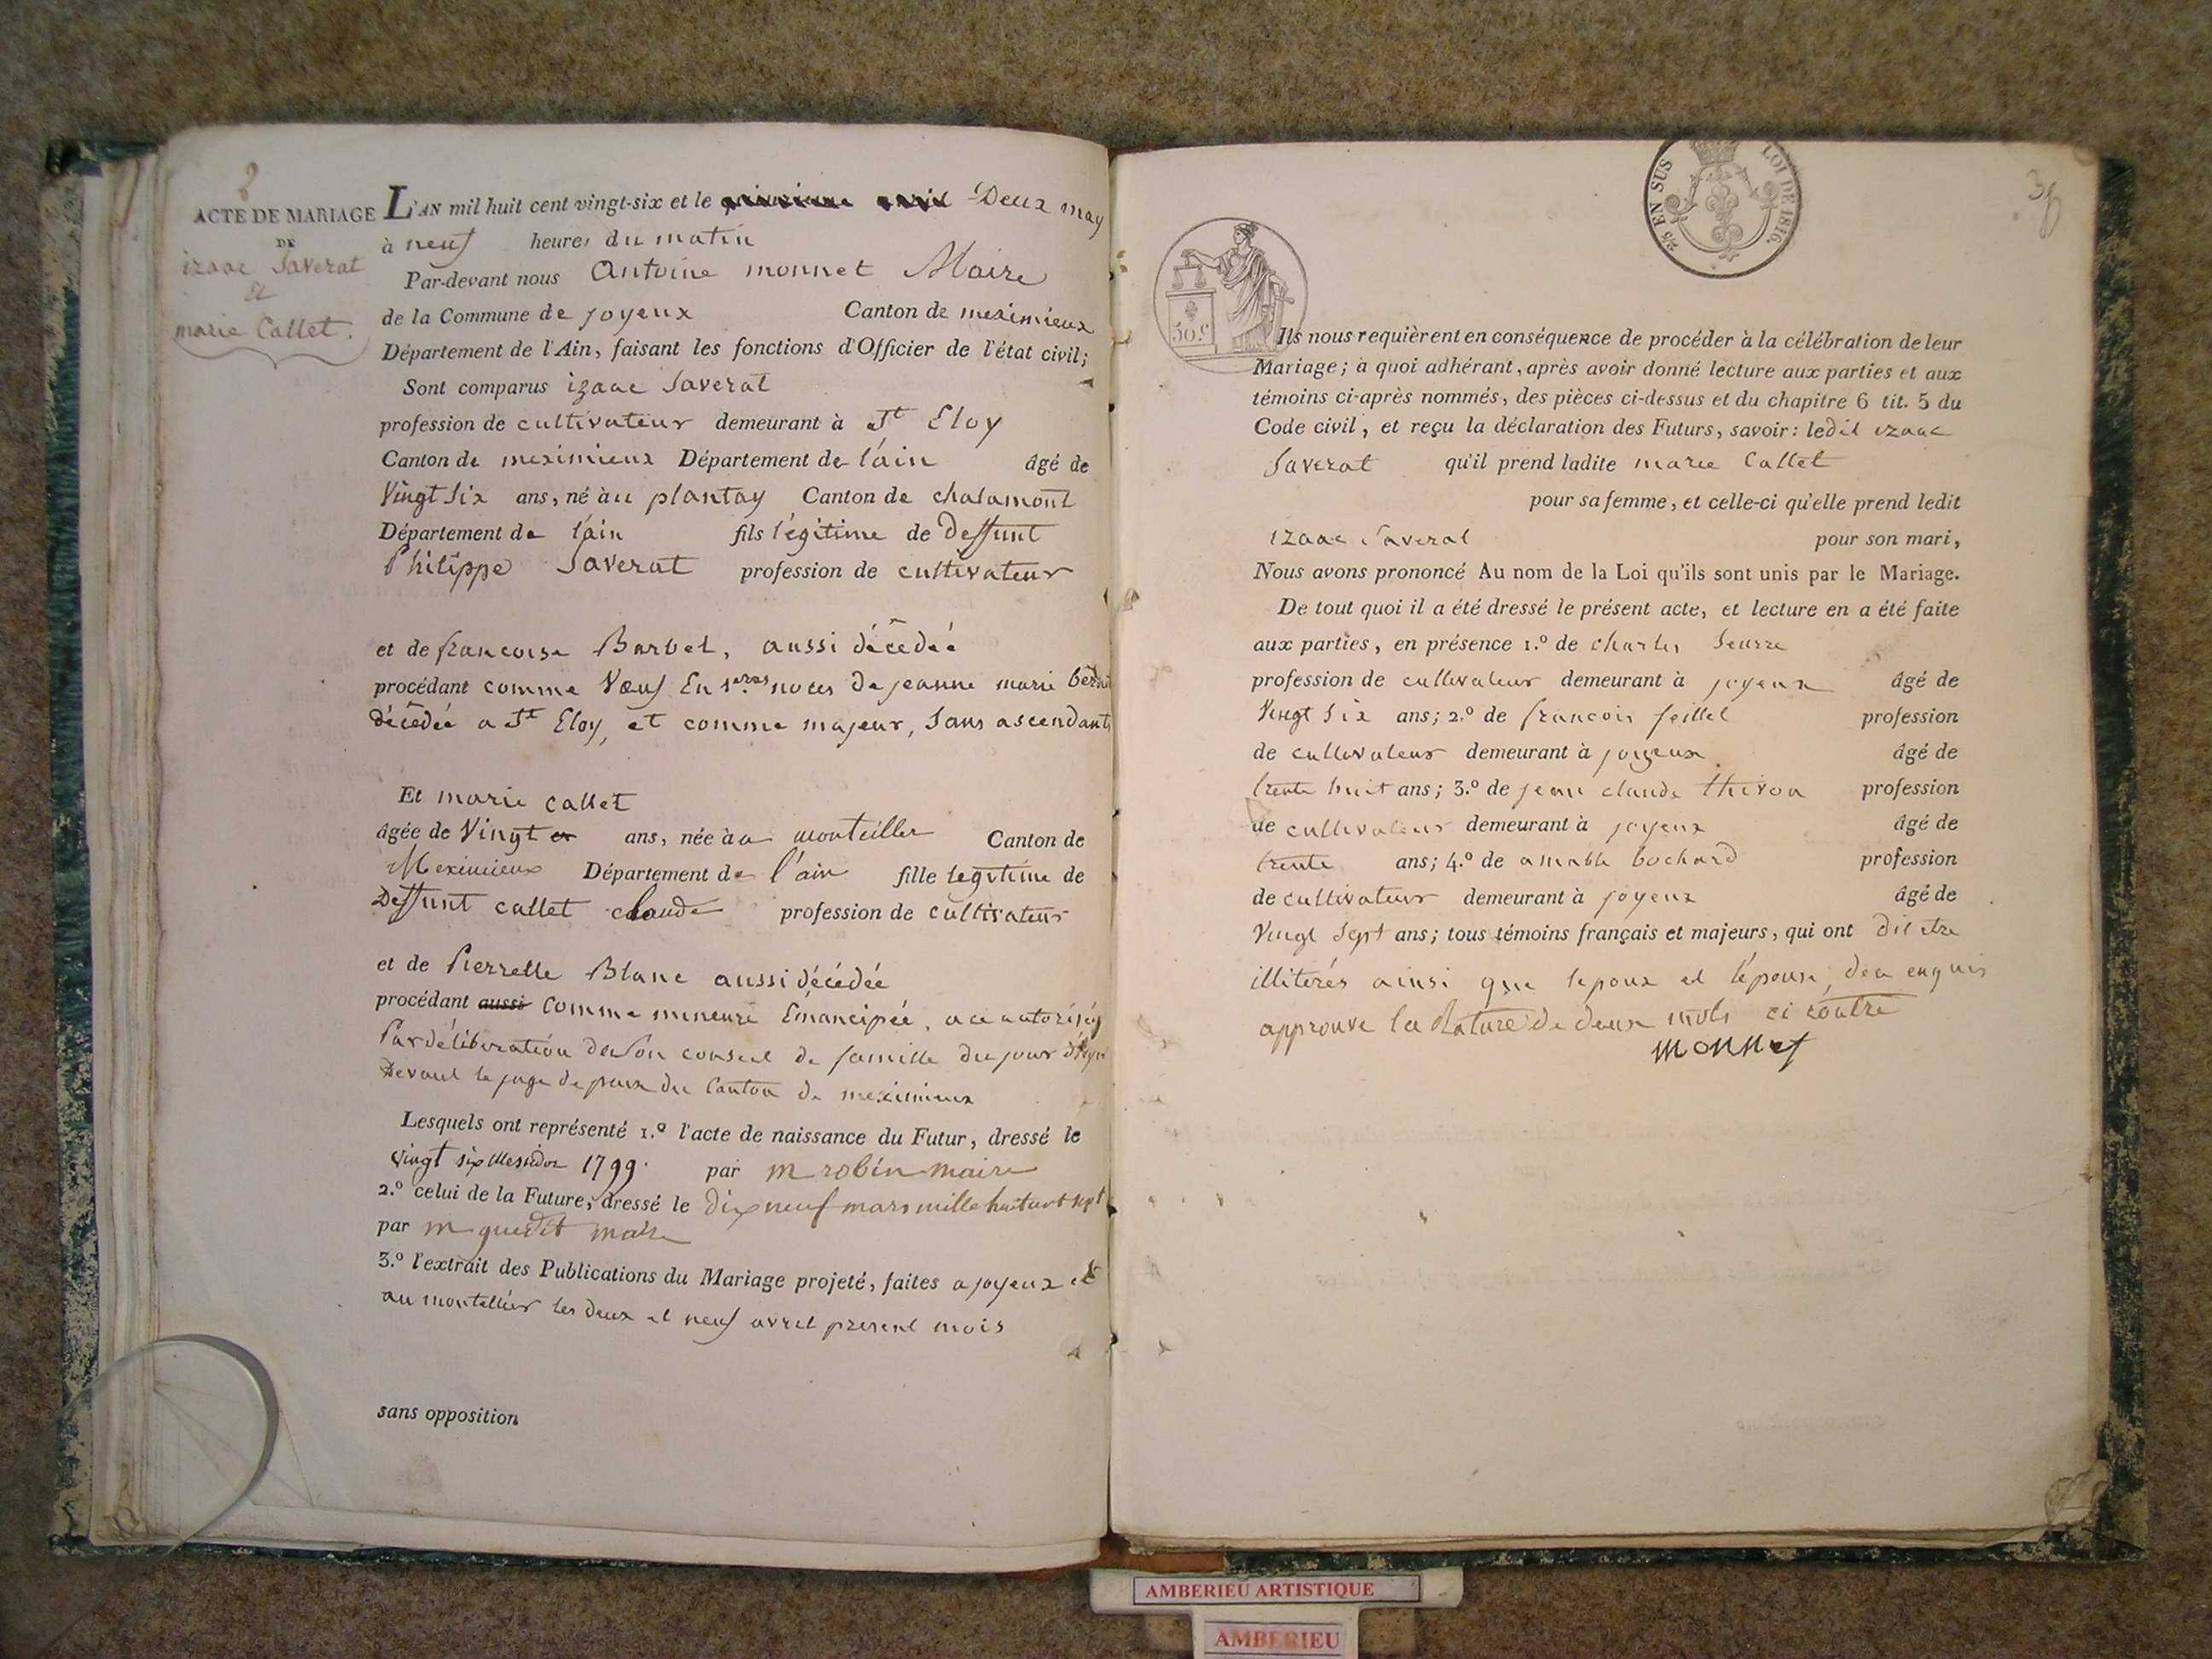 2
ACTE DE MARIAGE
DE
izaac Saverat
et
marie Callet.
L'AN mil huit cent vingt-six et le Deux may
à neuf heures du matin
Par-devant nous Antoine monnet Maire
de la Commune de joyeux Canton de meximieux
Département de l'Ain, faisant les fonctions d'Officier de l'état civil;
Sont comparus izaac Saverat
profession de cultivateur demeurant à St Eloy
Canton de meximieux Département de lain âgé de
Vingt Six ans, né à u plantay Canton de chalamont
Département de lain fils légitime de deffunt
Philippe Saverat profession de cultivateur
et de francoise Barbet, aussi décédeé
procédant comme Vœuf En 1eres noces de jeanne marie
décédeé a St Eloy, et comme majeur, Sans ascendants
Et marie callet
âgée de Vingt ans, née à u montellier Canton de
Meximieux Département de l'ain fille legitime de
Deffunt callet claude profession de cultivateur
et de Pierrette Blanc aussi décédée
procédant aussi comme mineure Emancipée, a ce autorisée
Par délibération de Son conseil de famille du jour d'hyer
Devant le juge de paix du Canton de meximieux
Lesquels ont représenté 1.º l'acte de naissance du Futur, dressé le
vingt six Messidor 1799. par m robin maire
2.º celui de la Future, dressé le dix neuf mars mille huit cent sept
par m maire
3.º l'extrait des Publications du Mariage projeté, faites a joyeux et
au montellier les deux et neuf avril present mois
sans opposition
25 EN SUS
LOI DE 1816.
50.c
Ils nous requièrent en conséquence de procéder à la célébration de leur
Mariage; à quoi adhérant, après avoir donné lecture aux parties et aux
témoins ci-après nommés, des pièces ci-dessus et du chapitre 6 tit. 5 du
Code civil, et reçu la déclaration des Futurs, savoir: ledit izaac
Saverat qu'il prend ladite marie Callet
pour sa femme, et celle-ci qu'elle prend ledit
izaac Saverat pour son mari,
Nous avons prononcé Au nom de la Loi qu'ils sont unis par le Mariage.
De tout quoi il a été dressé le présent acte, et lecture en a été faite
aux parties, en présence 1.º de charles Seurre
profession de cultivateur demeurant à joyeux âgé de
Vingt Six ans; 2.º de francois feillet profession
de cultivateur demeurant à joyeux âgé de
trente huit ans; 3.º de jean claude thivon profession
de cultivateur demeurant à joyeux âgé de
trente ans; 4.º de amable bochard profession
de cultivateur demeurant à joyeux âgé de
Vingt Sept ans; tous témoins français et majeurs, qui ont dit etre
illiterés ainsi que lepoux et lépouse, de ce enquis
approuvé la Rature de deux mots ci contre
monnet
AMBERIEU ARTISTIQUE
AMBERIEU